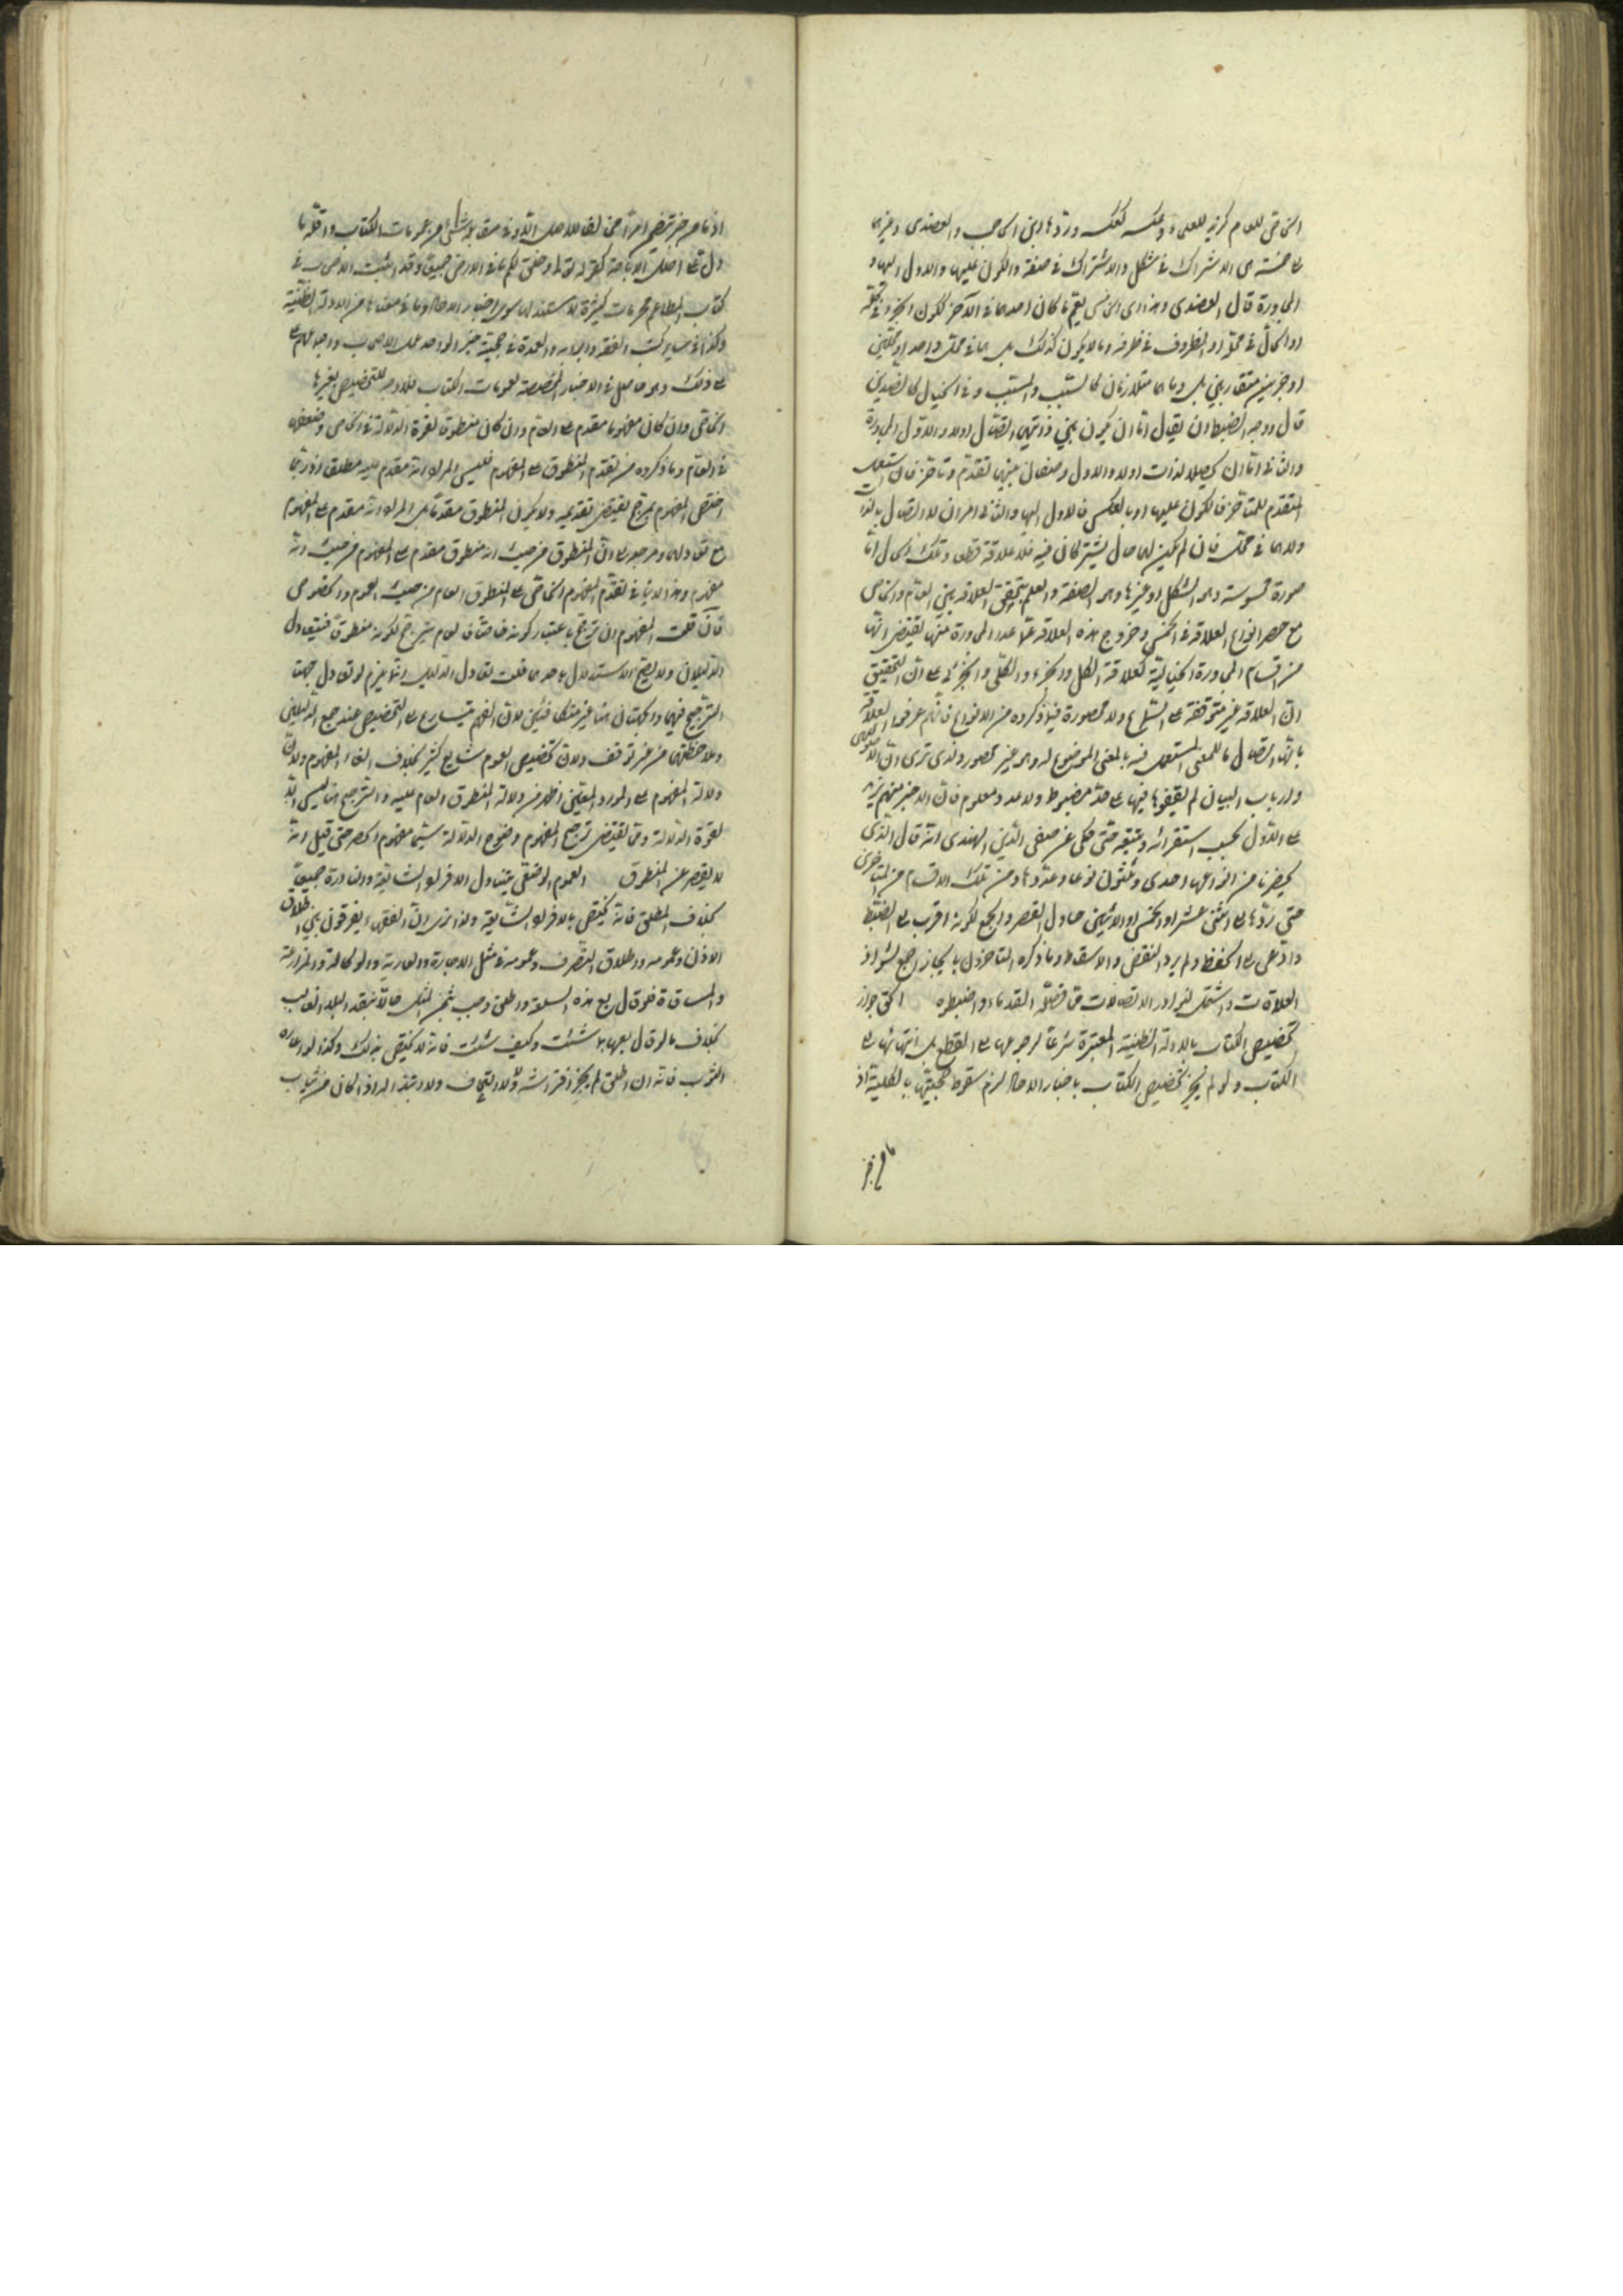 الخاص للعام كزيد للعلماء وعكسه كعكسه وردّها ابن الحاجب والعضدي وغيرهما
على خمسة هي الاشتراك في شكل والاشتراك في صفة والكون عليها والاول اليها و
المجاورة قال العضدي وهذا الخامس يعم ما كان احدهما في الآخر ككون الجزء في كله
او الحال في محله او المظروف في ظرفه وما لا يكون كذلك بل هما في محل واحد او محلين
او حيزين متقاربين بل وما هما متلازمان كالسبب والمسبب وفي الخيال كالضدين
قال ووجه الضبط ان يقال اما ان يكون بين ذاتيهما اتصال اولا والاول المجاورة
والثاني اما ان يحصلا لذات اولا والاول وصفان بينهما تقدم وتأخر فان استعمل
المتقدم للمتأخر فالكون عليها او بالعكس فالاول اليها والثاني امران لا اتصال بالذا
ولا هما في محل فان لم يكن لهما حال يشتركان فيه فلا علاقة قطعا وتلك الحال اما
صورة محسوسة وهو الشكل او غيرها وهو الصفة والعلم بتحقق العلاقة بين العام والخاص
مع حصر انواع العلاقة في الخمس وخروج هذه العلاقة عما عدا المجاورة منها يقتضي انها
من اقسام المجاورة الخيالية كعلاقة الكل والجزء والكلي والجزئي على ان التحقيق
ان العلاقة غير متوقفة على السماع ولا محصورة فيما ذكروه من الانواع فانهم عرفوا العلاقة
بانها اتصال ما للمعنى المستعمل فيه بالمعنى الموضوع له وهو غير محصور ولذا ترى ان الاصوليين
وارباب البيان لم يقفوا فيها على حدّ مضبوط ولا عدد معلوم فان الاخير منهم يزيد
على الاول بحسب استقرائه وتتبعه حتى حكي عن صفي الدين الهندي انه قال الذي
يحضرنا من انواعها احدى وثلثون نوعا وعدّدها ومن تلك الاقسام من المتأخرين
حتى ردّها على اثني عشر او الخمس او الاثنين حاول القصر والجمع لكونه اقرب الى الضبط
وادعى الى الحفظ ولم يرد النقض والاسقاط وما ذكره المتأخرون بايجاز اجمع لشوارد
العلاقات واشتمل لنوادر الاتصالات مما فصله القدماء واضبطه الحق جواز
تخصيص الكتاب بالادلة الظنية المعتبرة شرعا لرجوعها الى القطع بل انتهائها الى
الكتاب ولو لم يجز تخصيص الكتاب باخبار الاحاد لزم سقوط حجيتها بالكلية اذ
اذ ما من خبر تضمن امرا مخالفا للاصل الا وفي مقابله شيء من عمومات الكتاب واقله ما
دل على اصالة الاباحة كقوله تعالى وخلق لكم ما في الارض جميعا وقد اثبت الاصحاب في
كتاب المطاعم محرمات كثيرة لا مستند لها سوى اخبار الاحاد وما في معناها من الادلة الظنية
وكذا في سائر كتب الفقه وابوابه والعمدة في حجية خبر الواحد عمل الاصحاب واجماعهم على
ذلك وهو حاصل في الاخبار المخصصة لعمومات الكتاب فلا وجه للتخصيص بغيرها
الخاص وان كان مفهوما مقدم على العام وان كان منطوقا لقوة الدلالة في الخاص وضعفه
في العام وما ذكروه من تقدم المنطوق على المفهوم فليس المراد انه مقدم عليه مطلقا اذ ربما
اختص المفهوم بمرجح يقتضي تقديمه ولا يكون المنطوق مقدما بل المراد انه مقدم على المفهوم
مع تعادلهما ومرجعه الى ان المنطوق من حيث انه منطوق مقدم على المفهوم من حيث انه
مفهوم وهذا لا ينافي تقدم المفهوم الخاص على المنطوق العام من حيث العموم والخصوص
فان قلت المفهوم ان ترجح باعتبار كونه خاصا فالعام يترجح لكونه منطوقا فيتعادل
الدليلان ولا يصح الاستدلال باحدهما قلت تعادل الدليلين انما يلزم لو تعادل جهتا
الترجيح فيهما والجهتان هنا غير متكافئتين لان الفهم يتسارع الى التخصيص عند جمع الدليلين
وملاحظتهما من غير توقف ولان تخصيص العموم شايع كثير بخلاف الغاء المفهوم ولان
دلالة المفهوم على المورد المعين اظهر من دلالة المنطوق العام عليه والترجيح هنا ليس الا
لقوة الدلالة ومما يقتضي ترجيح المفهوم وضوح الدلالة سيما مفهوم الحصر حتى قيل انه
لا يقصر عن المنطوق العموم الوضعي يتناول الافراد الشايعة والنادرة جميعا
بخلاف المطلق فانه يختص بالافراد الشايعة ولذا نرى ان الفقهاء يفرقون بين اطلاق
الاذن وعمومه واطلاق التصرف وعمومه في مثل الاجارة والعارية والوكالة والمزارعة
والمساقاة فلو قال بع هذه السلعة واطلق وجب ثمن المثل حالا بنقد البلد الغالب
بخلاف ما لو قال بعها بما شئت وكيف شئت فانه لا يختص بذلك وكذا لو اعاره
الثوب فانه ان اطلق لم يجز افتراشه ولا الالتحاف ولا ارتداؤه الا اذا كان من ثياب